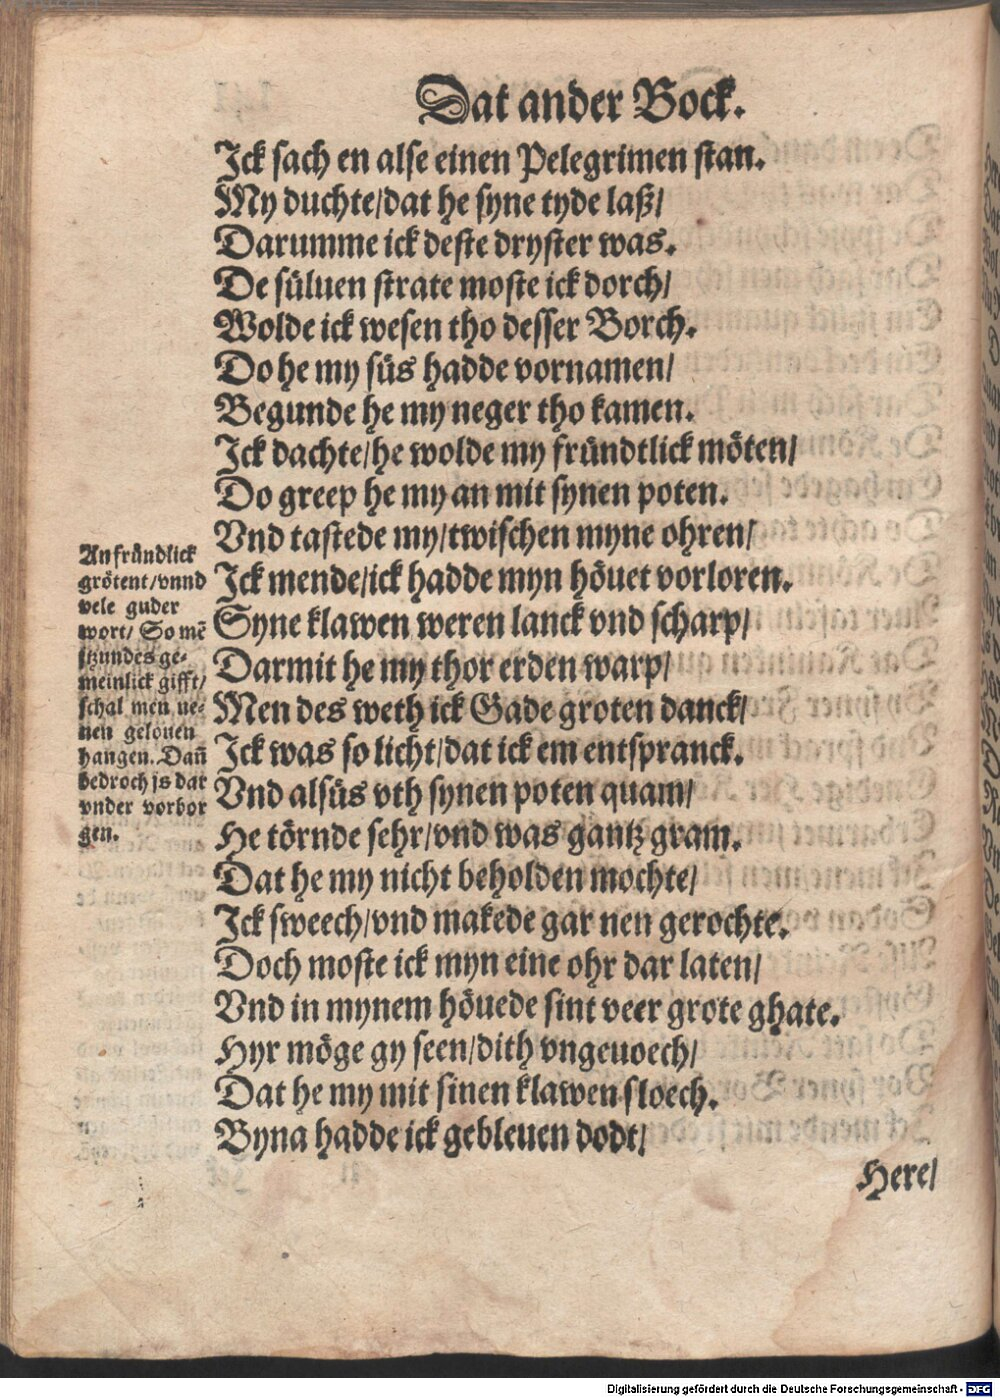 Dat ander Bock.
Jck sach en alse einen Pelegrimen stan.
My duchte/dat he syne tyde laß/
Darumme ick deste dryster was.
De süluen strate moste ick dorch/
Wolde ick wesen tho desser Borch.
Do he my süs hadde vornamen/
Begunde he my neger tho kamen.
Jck dachte/he wolde my fründtlick möten/
Do greep he my an mit synen poten.
Vnd tastede my/twischen myne ohren/
Jck mende/ick hadde myn höuet vorloren.
Syne klawen weren lanck vnd scharp/
Darmit he my thor erden warp/
Men des weth ick Gade groten danck/
Jck was so licht/dat ick em entspranck.
Vnd alsüs vth synen poten quam/
He törnde sehr/vnd was gantz gram.
Dat he my nicht beholden mochte/
Jck sweech/vnd makede gar nen gerochte.
Doch moste ick myn eine ohr dar laten/
Vnd in mynem höuede sint veer grote ghate.
Hyr möge gy seen/dith vngeuoech/
Dat he my mit sinen klawen sloech.
Byna hadde ick gebleuen dodt/
Here/
An fründlick
grötent/vnnd
vele guder
wort/ So mē
itzundes ge-
meinlick gifft/
schal men ne-
nen gelouen
hangen. Dañ
bedroch is dar
vnder vorbor
gen.
Digitalisierung gefördert durch die Deutsche Forschungsgemeinschaft - DFG